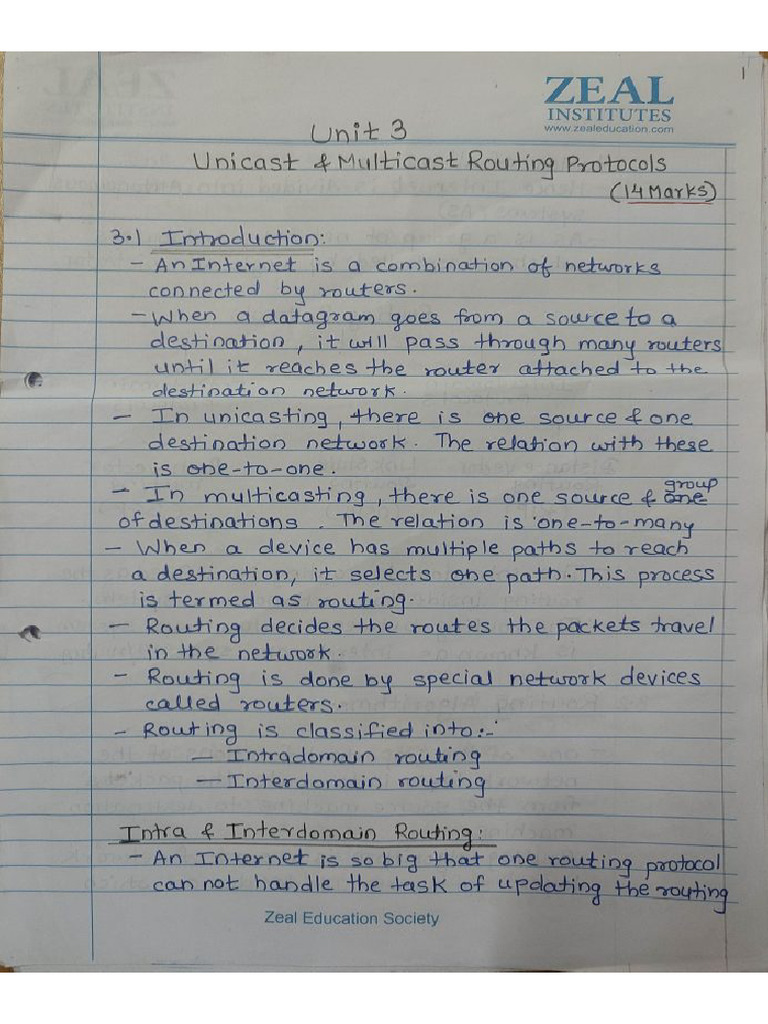 1
ZEAL
INSTITUTES
www.zealeducation.com
Unit 3
Unicast & Multicast Routing Protocols
(14 Marks)
3.1 Introduction:
- An Internet is a combination of networks
connected by routers.
- When a datagram goes from a source to a
destination, it will pass through many routers
until it reaches the router attached to the
destination network.
- In unicasting, there is one source & one
destination network. The relation with these
is one-to-one.
group
- In multicasting, there is one source & one
of destinations. The relation is one-to-many
- When a device has multiple paths to reach
a destination, it selects one path. This process
is termed as routing.
- Routing decides the routes the packets travel
in the network.
- Routing is done by special network devices
called routers.
- Routing is classified into:-
- Intradomain routing
- Interdomain routing
Intra & Interdomain Routing:
- An Internet is so big that one routing protocol
can not handle the task of updating the routing
Zeal Education Society